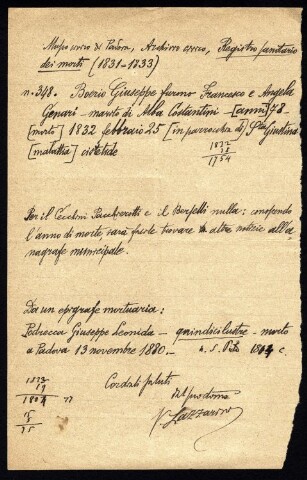 Museo civico di Padova, Archivio civico, Registro sanitario
dei morti (1831-1833)
n. 348. Boerio Giuseppe furono Francesco e Angela
Genari - marito di Alba Costantini - [anni] 78 -
[morto] 1832 febbraio 25 [in parrocchia di] S.ta Giustina
[malattia] cistitide
1832
78
1754
Per il Cecchini Pacchierotti e il nulla: conoscendo
l'anno di morte sarà facile trovare altre notizie all'a
nagrafe municipale.
Da un epigrafe mortuaria:
Pedrocca Giuseppe Leonida - quindicilustre - morto
a Padova 13 novembre 1880.-
Cordiali saluti
dal suo domo
V. Lazzarini